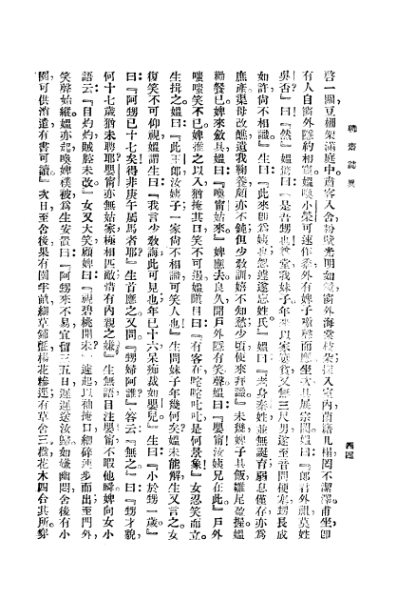 聊齋誌異
四四
啓一關豆棚架滿庭中肅客入舍粉壁光明如鏡窗外海棠枝朵探入室內茵藉几榻罔不潔澤甫坐卽
有人自窗外隱約相窺媼喚小榮可速作黍外有婢子噭聲而應坐次具展宗閥媼曰『郎君外祖莫姓
吳否』曰『然』媼驚曰『是吾甥也尊堂我妹子年來以家窶貧又無三尺男遂至音問梗塞甥長成
如許尚不相識』生曰『此來卽爲姨也匆遽遂忘姓氏』媼曰『老身秦姓並無誕育弱息僅存亦爲
庶產渠母改醮遺我鞠養頗亦不鈍但少敎訓嬉不知愁少頃使來拜識』未幾婢子具飯雛尾盈握媼
勸餐已婢來斂具媼曰『喚甯姑來』婢應去良久聞戶外隱有笑聲媼又喚曰『嬰甯汝姨兄在此』戶外
嗤嗤笑不已婢推之以入猶掩其口笑不可遏媼瞋目曰『有客在咤咤叱叱是何景象』女忍笑而立
生揖之媼曰『此王郎汝姨子一家尚不相識可笑人也』生問妹子年幾何矣媼未能解生又言之女
復笑不可仰視媼謂生曰『我言少敎誨此可見也年已十六呆癡裁如嬰兒』生曰『小於甥一歲』
曰『阿甥已十七矣得非庚午屬馬者耶』生首應之又問『甥婦阿誰』答云『無之』曰『如甥才貌
何十七歲猶未聘耶嬰甯亦無姑家極相匹敵惜有內親之嫌』生無語目注嬰甯不暇他瞬婢向女小
語云『目灼灼賊腔未改』女又大笑顧婢曰『視碧桃開未』遽起以袖掩口細碎蓮步而出至門外
笑聲始縱媼亦起喚婢襆被爲生安置曰『阿甥來不易宜留三五日遲遲送汝歸如嫌幽悶舍後有小
園可供消遣有書可讀』次日至舍後果有園半畝細草鋪氈楊花糝逕有草舍三楹花木四合其所穿